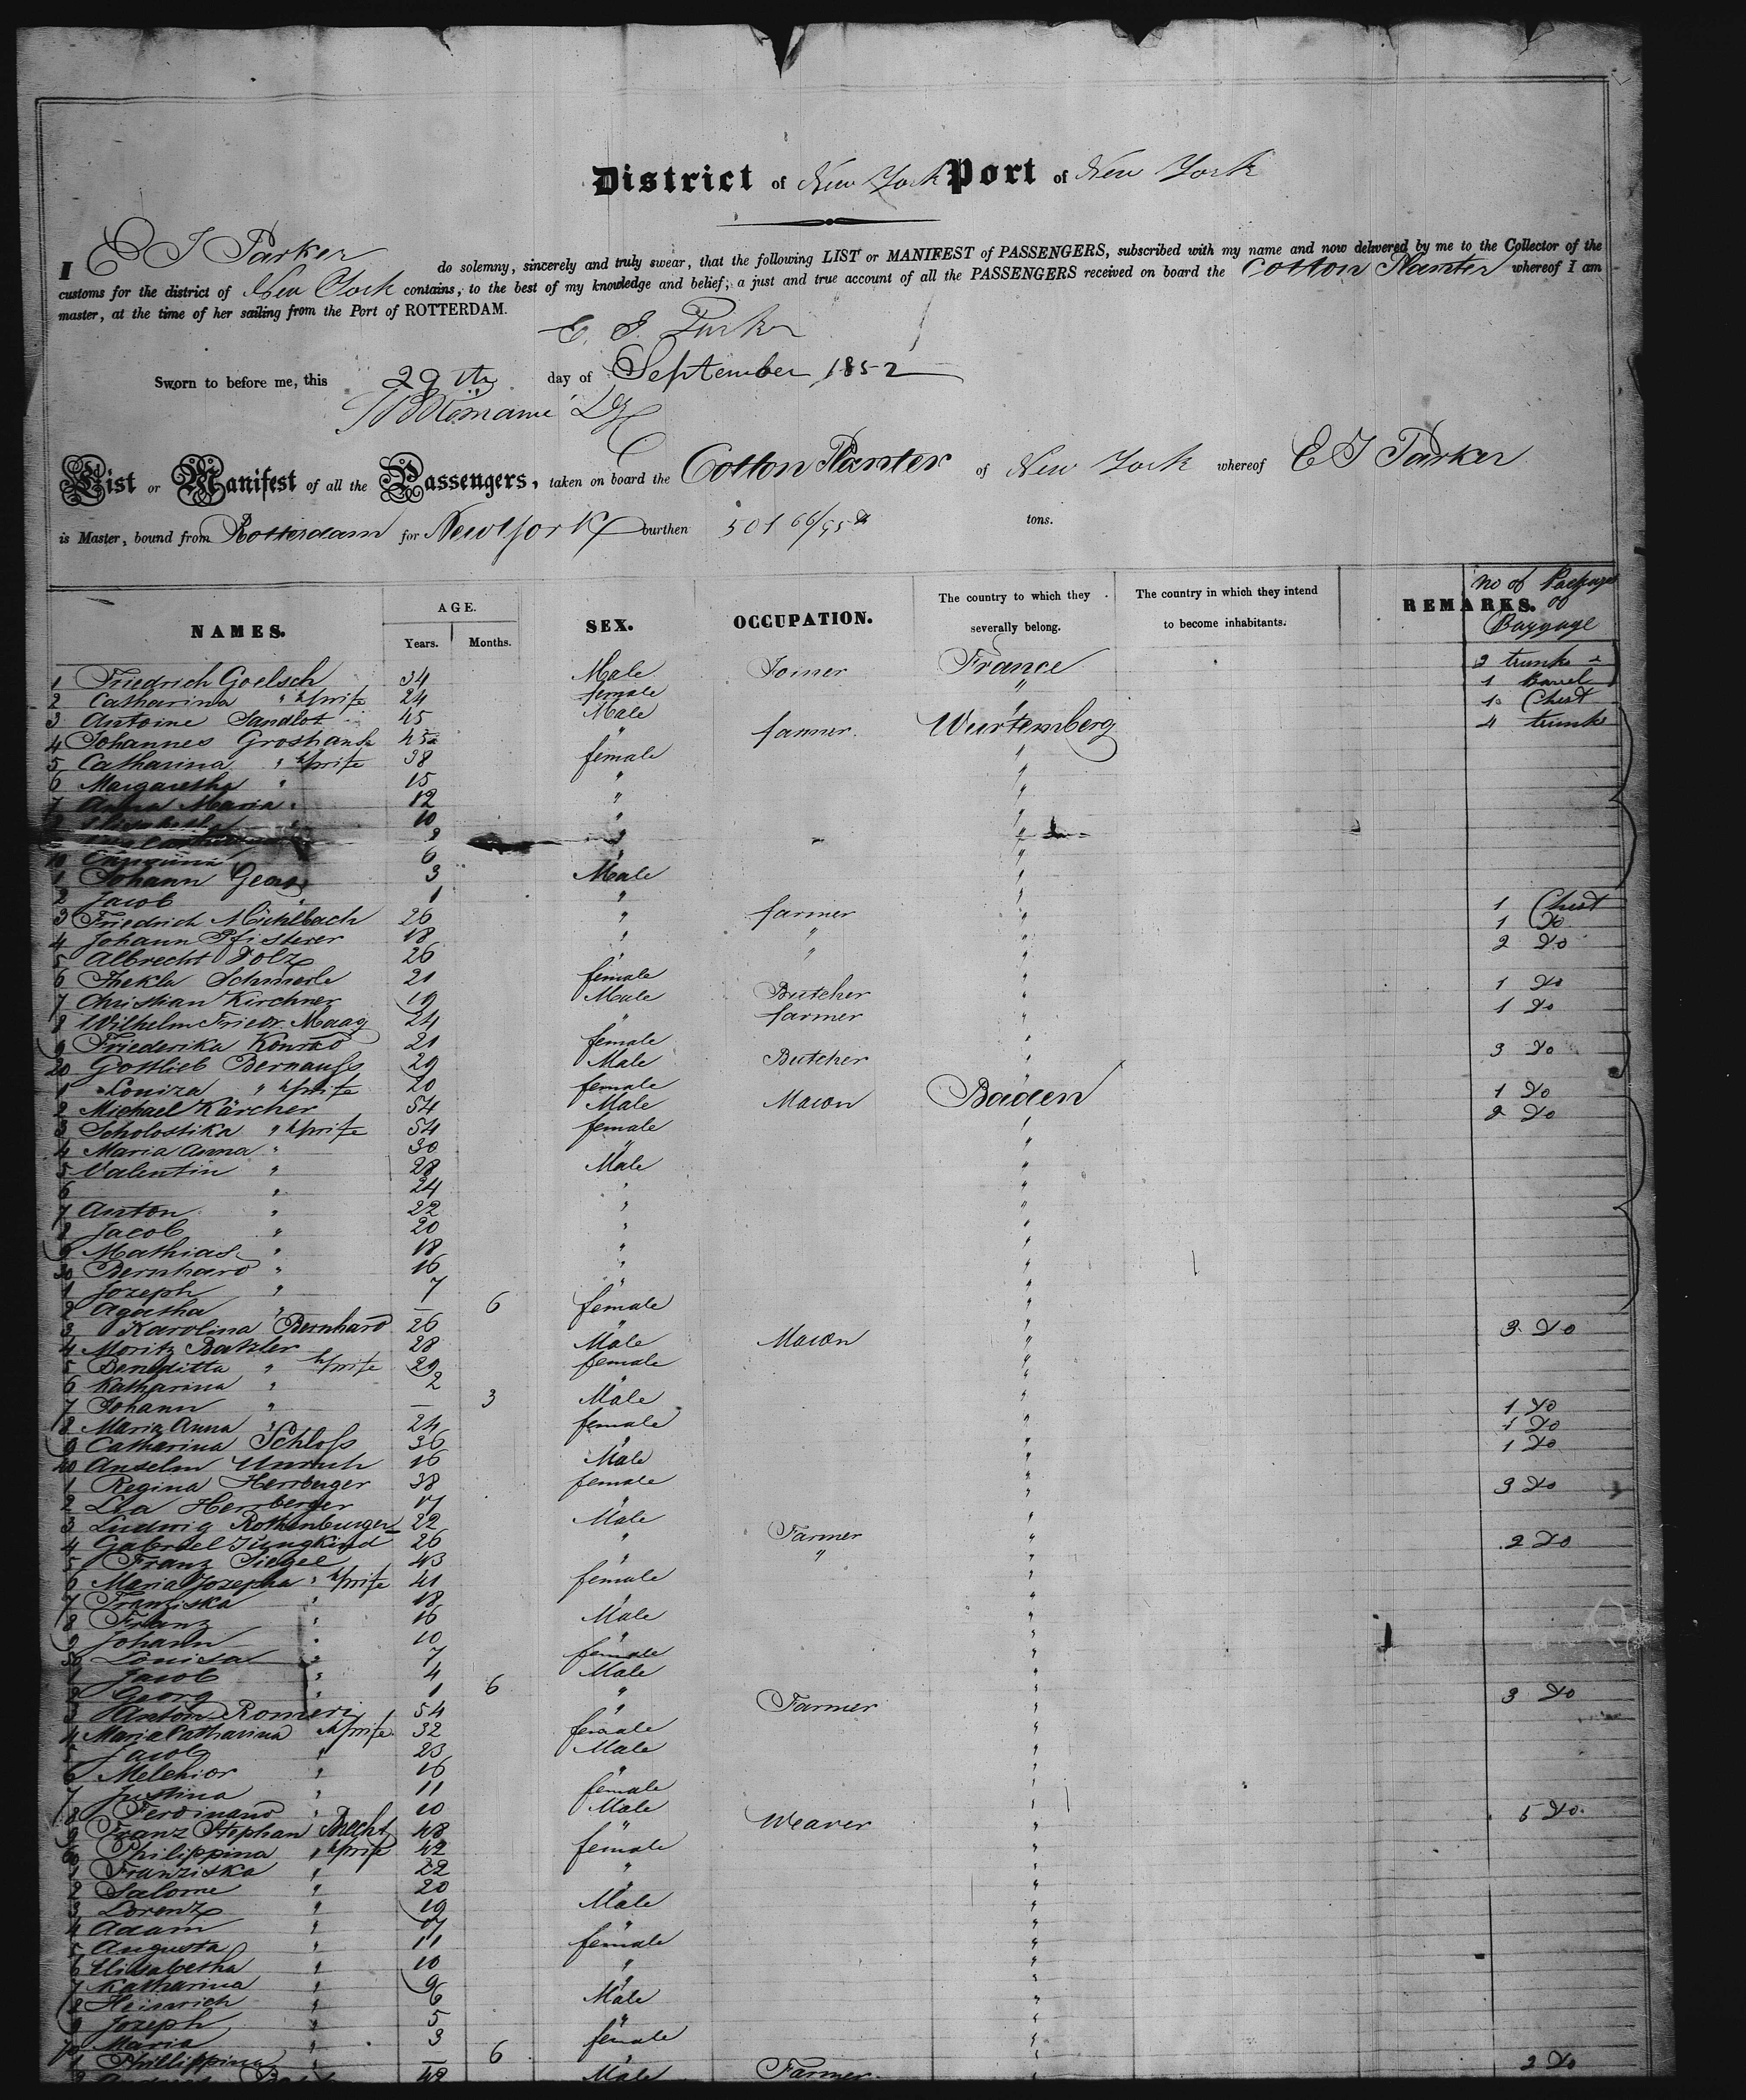 District of New York Port of New York
I E J Parker do solemny, sincerely and truly swear, that the following LIST or MANIFEST of PASSENGERS, subscribed with my name and now delivered by me to the Collector of the
customs for the district of New York contains, to the best of my knowledge and belief, a just and true account of all the PASSENGERS received on board the Cotton Planter whereof I am
master, at the time of her sailing from the Port of ROTTERDAM.
E. J. Parker
Sworn to before me, this 29th day of September 1852
List or Manifest of all the Passengers, taken on board the Cotton Planter of New York whereof E J Parker
is Master, bound from Rotterdam for New York burthen 501 66/95 tons.
NAMES. AGE. Years. Months. SEX. OCCUPATION. The country to which they severally belong. The country in which they intend to become inhabitants. REMARKS. No of Packages of Baggage
1 Friedrich Goelsch 34 Male Joiner France 2 trunks
2 Catharina " wife 24 female " 1 Barrel
3 Antoine Sandlot 45 Male " 1 Chest
4 Johannes Groshans 45 " farmer Wurtemberg 4 trunks
5 Catharina " wife 38 female "
6 Margaretha " 15 " "
7 Anna Maria " 12 " "
10 " "
8 " "
10 6 " "
1 Johann Georg 3 Male "
2 Jacob " 1 " "
3 Friedrich Mühlbach 26 " farmer " 1 Chest
4 Johann Pfisterer 18 " " " 1 Do
5 Albrecht Volz 26 " " " 2 Do
6 Thekla Schmierle 21 female "
7 Christian Kirchner 19 Male Butcher " 1 Do
8 Wilhelm Friedr. Maag 24 " farmer " 1 Do
9 Friederika Konrad 21 female "
20 Gottlieb Bernauss 29 Male Butcher " 3 Do
1 Louiza " wife 20 female "
2 Michael Kärcher 54 Male Mason Baden 1 Do
3 Scholostika " wife 54 female " 2 Do
4 Maria Anna " 30 " "
5 Valentin " 28 Male "
6 " 24 " "
7 Anton " 22 " "
8 Jacob " 20 " "
9 Mathias " 18 " "
30 Bernhard " 16 " "
1 Jozeph " 7 " "
2 Agatha " — 6 female "
3 Karolina Bernhard 26 " "
4 Moritz Batzler 28 Male Mason " 3 Do
5 Beneditta " wife 29 female "
6 Katharina " 2 " "
7 Johann " — 3 Male "
8 Maria Anna " 24 female " 1 Do
9 Catharina Schloss 36 " " 1 Do
40 Anselm Unruh 16 Male " 1 Do
1 Regina Herrberger 38 female "
2 Herrberger 17 " " 3 Do
3 Ludwig Rothenburger 22 Male "
4 Gabriel Jüngkind 26 " Farmer "
5 Franz Siegel 43 " " " 2 Do
6 Maria Jozepha " wife 41 female "
7 Franziska " 18 " "
8 Franz " 16 Male "
9 Johann " 10 " "
50 Louisa " 7 female "
1 Jacob " 4 Male "
2 Georg " 1 6 " "
3 Anton Romeri 54 " Farmer " 3 Do
4 Maria Catharina wife 32 female "
5 Jacob " 23 Male "
6 Melchior " 16 " "
7 Justina " 11 female "
8 Ferdinand " 10 Male "
9 Franz Stephan Brecht 48 " Weaver " 5 Do
60 Philippina " wife 42 female "
1 Franziska " 22 " "
2 Salome " 20 " "
3 Lorenz " 19 Male "
4 Adam " 17 " "
5 Augusta " 11 female "
6 Elisabetha " 10 " "
7 Katharina " 9 " "
8 Heinrich " 6 Male "
9 Jozeph " 5 " "
70 Maria " 3 female "
1 Phillippina " — 6 " "
42 Male Farmer " 2 Do